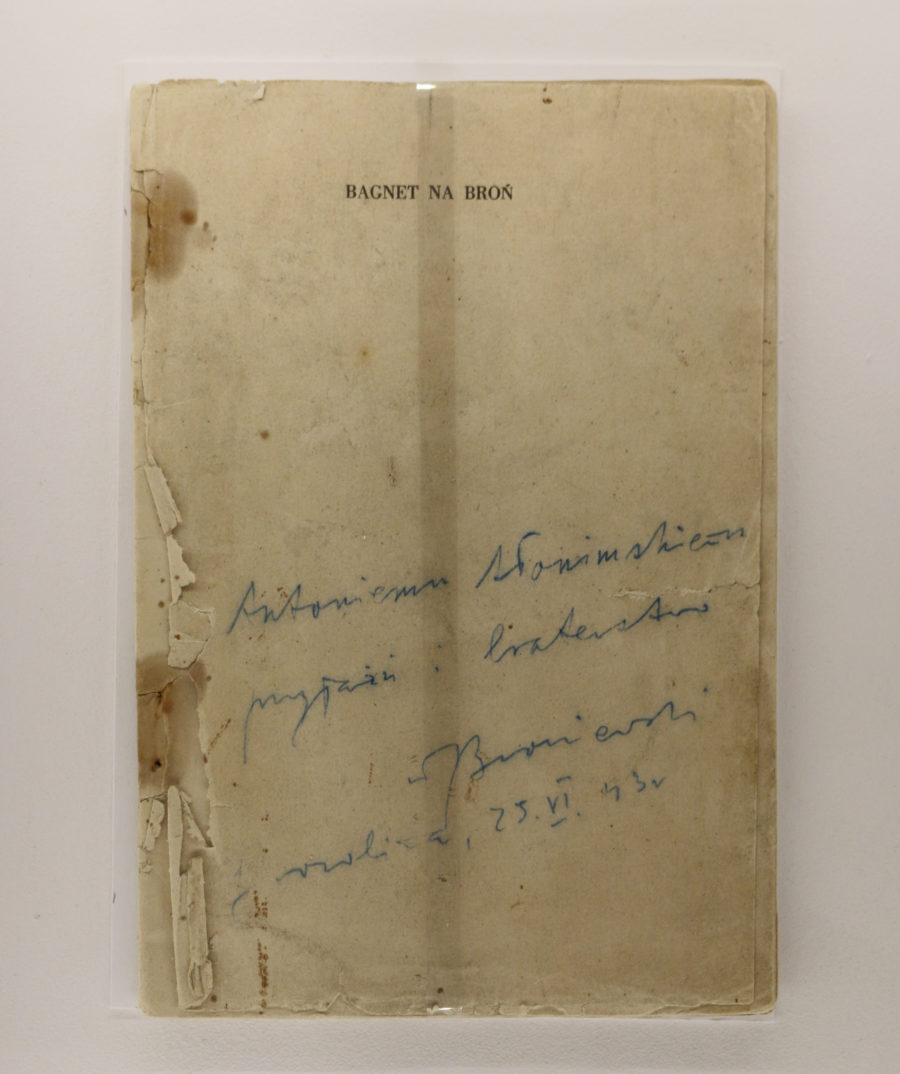 BAGNET NA BROŃ
Antoniemu Słonimskiemu
przyjaźń i braterstwo
W Broniewski
25.VI.43r